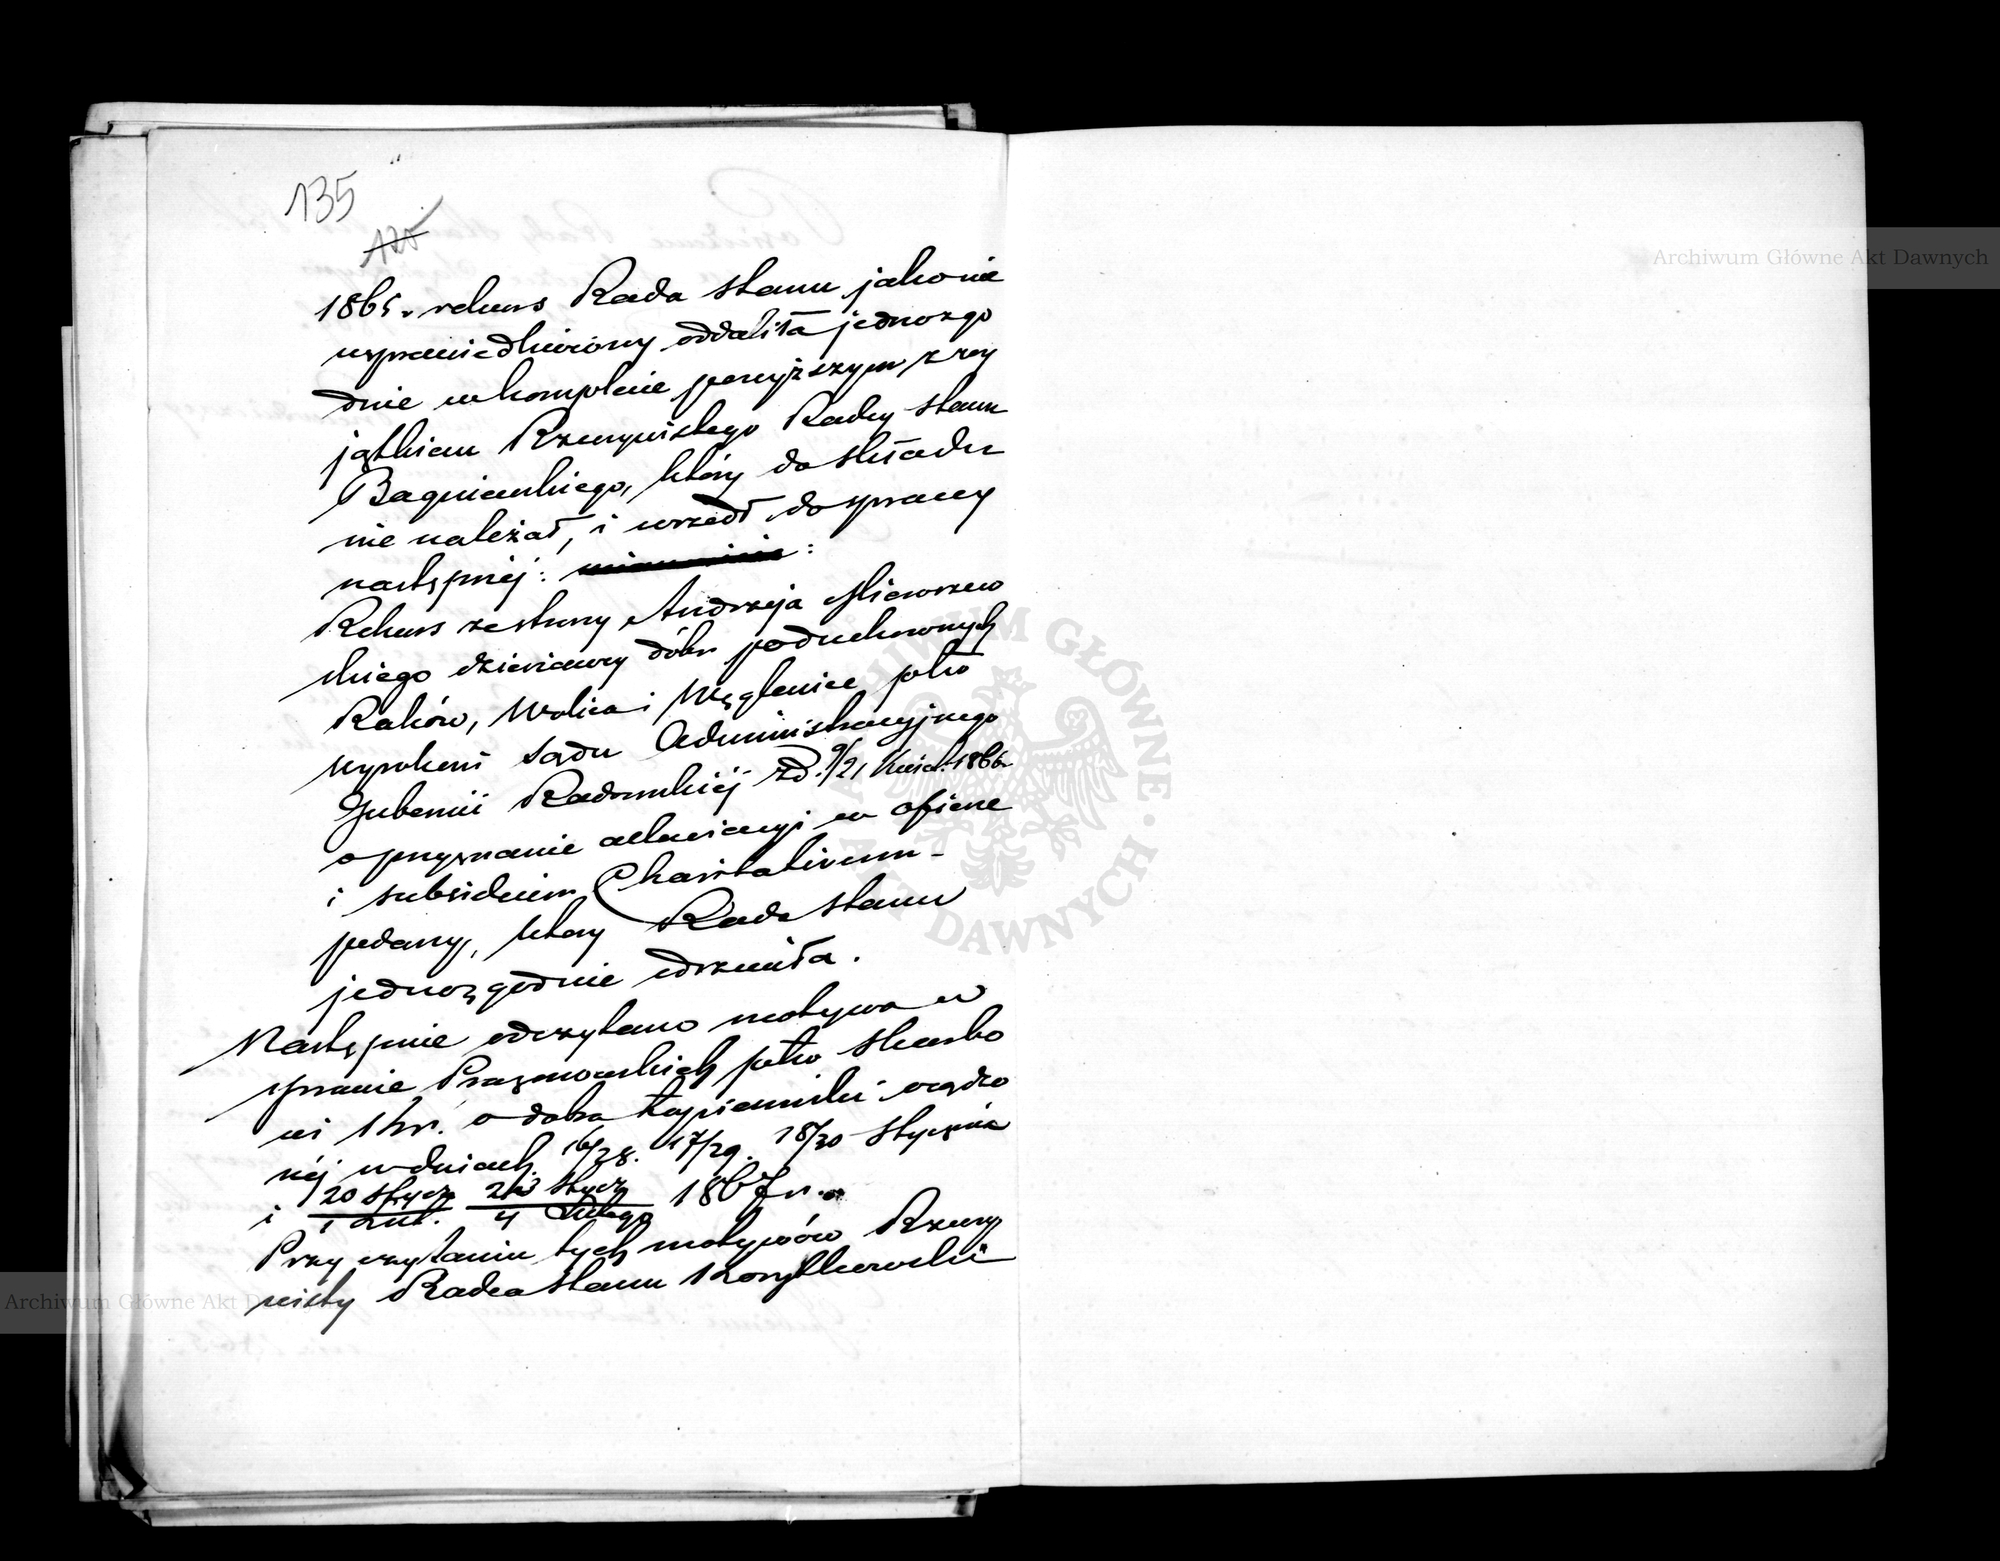 135
120
1865 r. rekurs Rada Stanu jako nie
usprawiedliwiony oddaliła jednozgo
dnie w komplecie powyższym z wy
jątkiem Rzeczywistego Radcy Stanu
Bagniewskiego, który do składu
nie należał, i wszedł do sprawy
następnej: :
Rekurs ze strony Andrzeja
skiego dzierżawcy dóbr poduchownych
Raków, Wolica i Węglenice pko
wyrokowi Sądu Administracyjnego
Gubernii Radomskiej z d. 9/21 Kwiet. 1866
o przyznanie w ofierze
i subsidium Charitativum -
podany, który Rada Stanu
jednozgodnie odrzuciła.
Następnie odczytano motywa w
sprawie Prażmowskich pko Skarbo
wi Kr. o dobra osądzo
nej w dniach 16/28. 17/29. 18/30 Stycznia
i 20 Stycz./1 Lut. 23 Stycz/4 Lutego 1867 r.
Przy czytaniu tych motywów Rzeczy
wisty Radca Stanu Korytkowski
Archiwum Główne Akt Dawnych
ARCHIWUM GŁÓWNE AKT DAWNYCH
Archiwum Główne Akt D